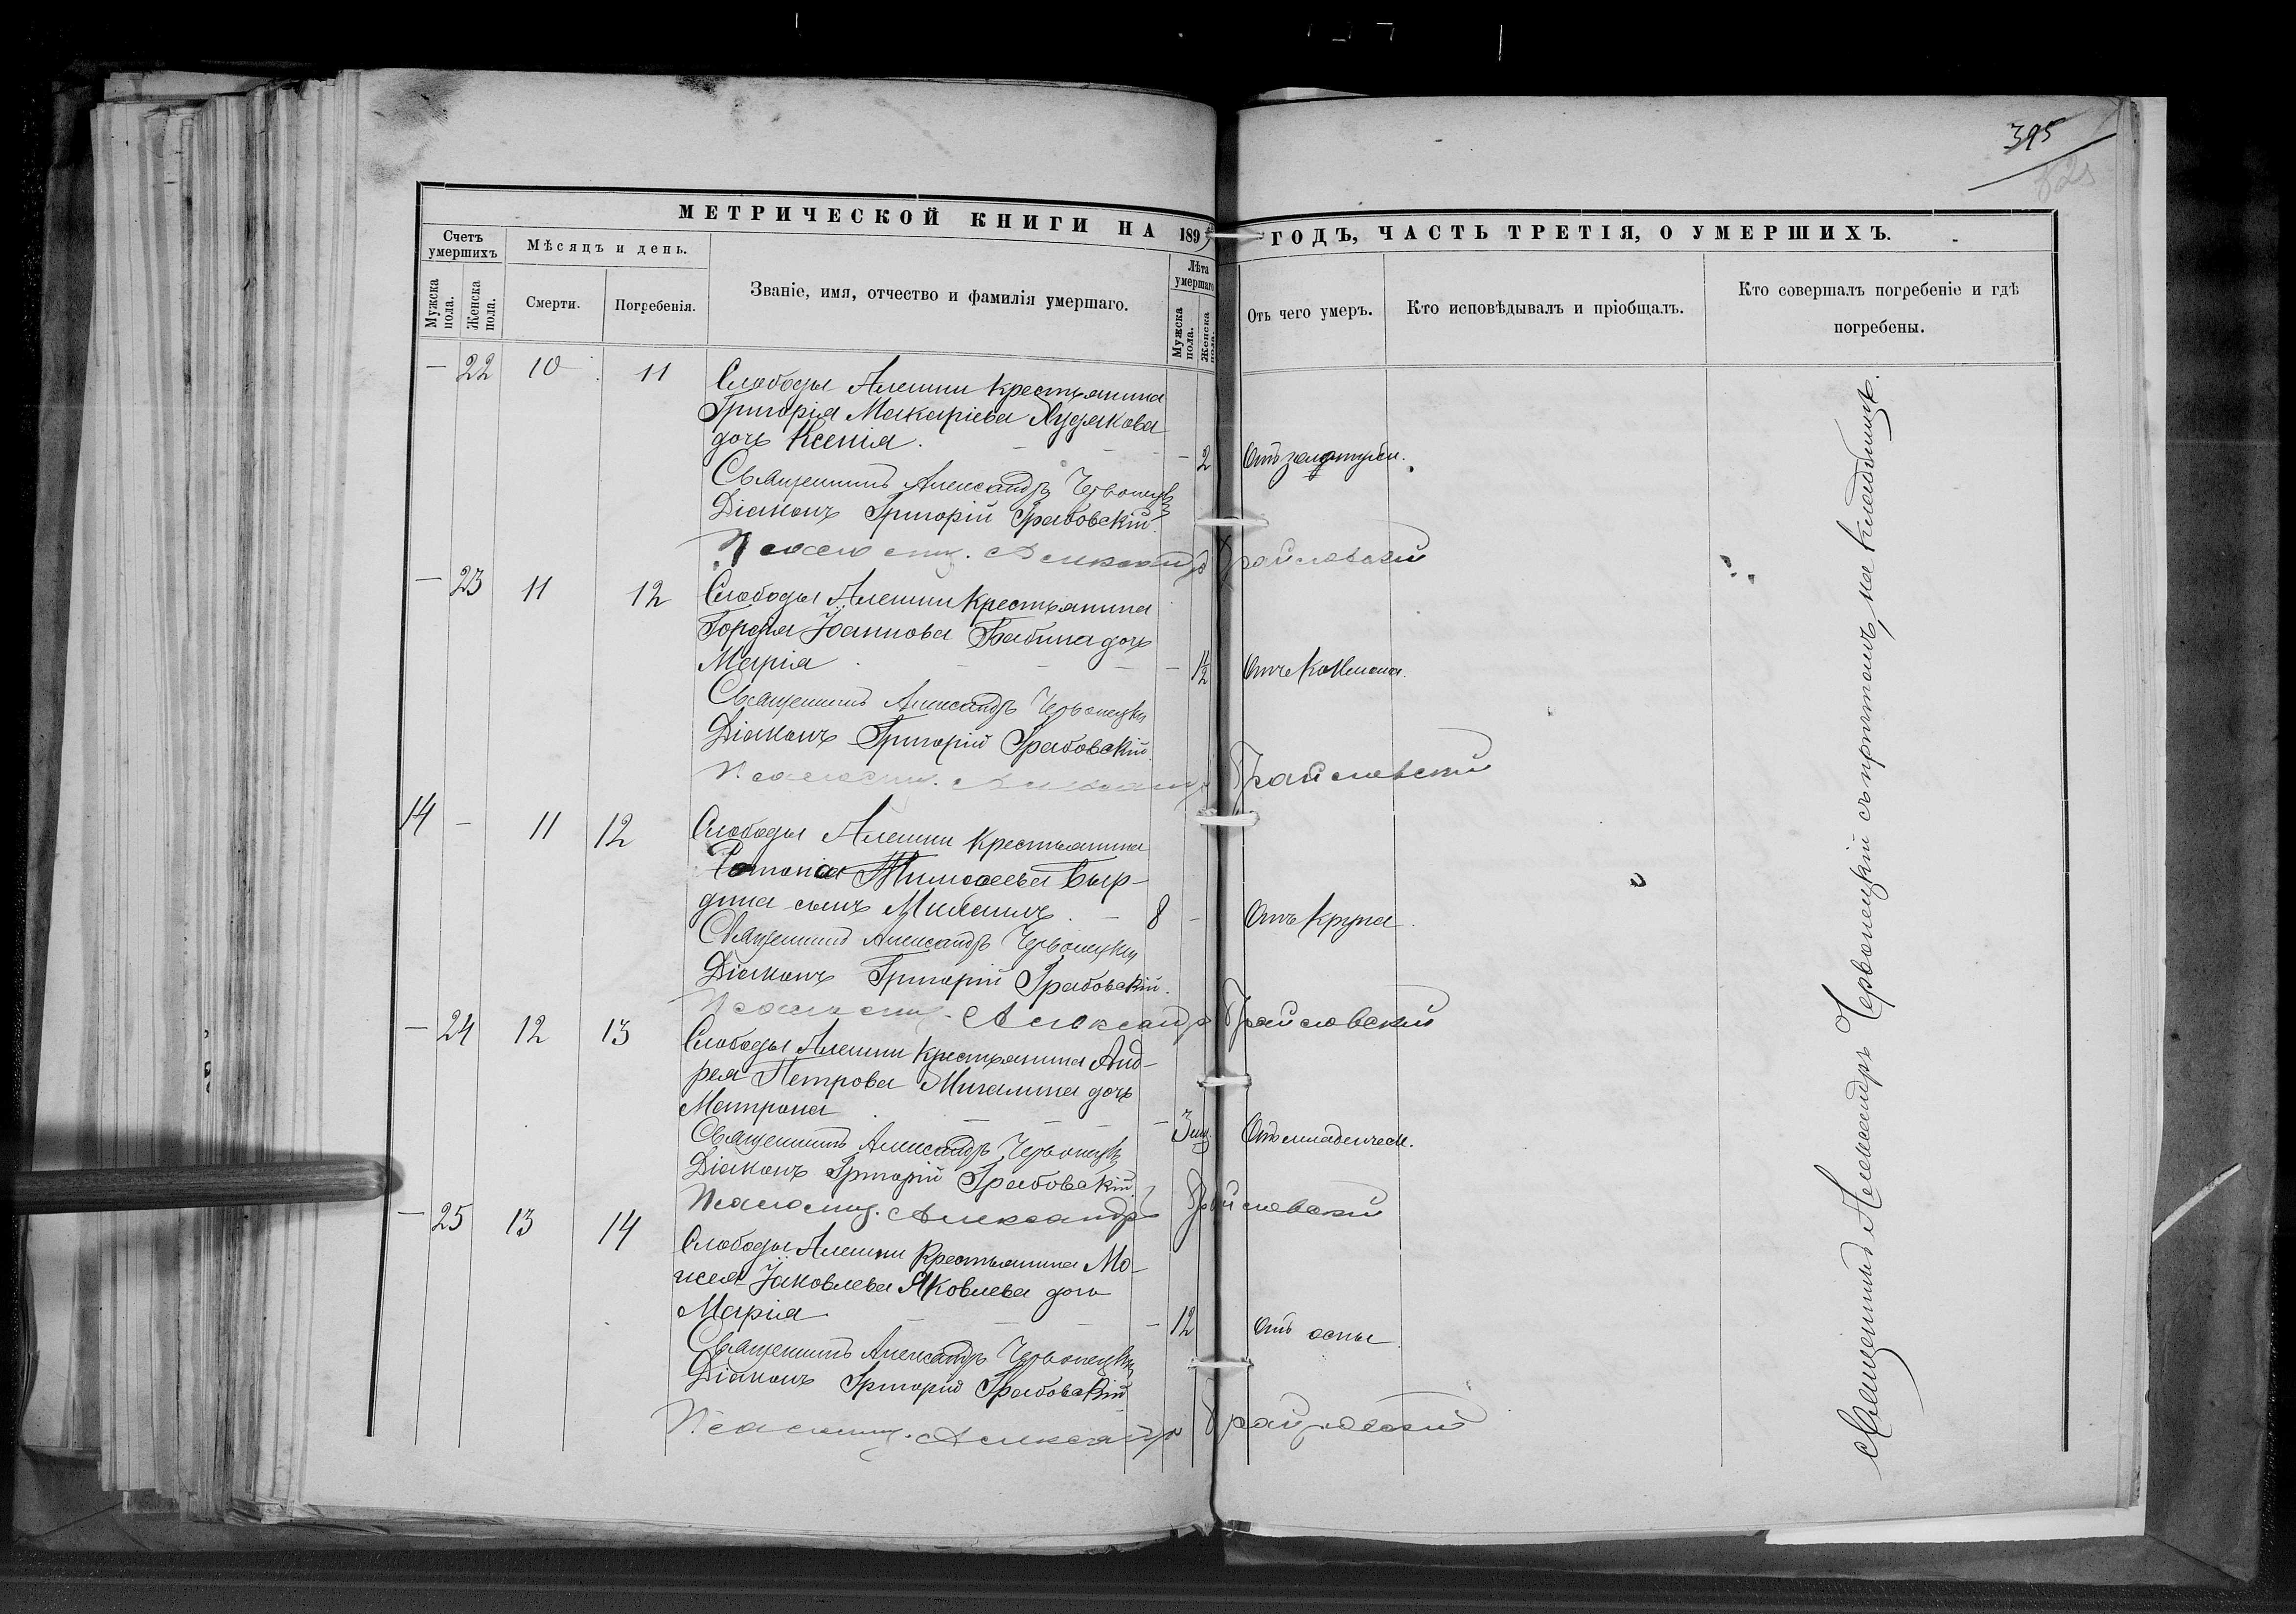 395
МЕТРИЧЕСКОЙ КНИГИ НА 189 ГОДЪ, ЧАСТЬ ТРЕТІЯ, О УМЕРШИХЪ.
Счетъ умершихъ
Мужска пола.
Женска пола.
Мѣсяцъ и день.
Смерти.
Погребенія.
Званіе, имя, отчество и фамилія умершаго.
Лѣта умершаго
Мужска пола.
Женска пола.
Отъ чего умеръ.
Кто исповѣдывалъ и пріобщалъ.
Кто совершалъ погребеніе и гдѣ погребены.
— 22 10 11 Слободы Алешни крестьянина
Григорія Макаріева Худякова
дочь Ксенія. — 2
Священникъ Александръ Червонецкій
Діаконъ Григорій Грабовскій
Псаломщ. Александръ
— 23 11 12 Слободы Алешни крестьянина
Гордѣя Іоаннова Бабина дочь
Марія — 1/2 Отъ кашля.
Священникъ Александръ Червонецкій
Діаконъ Григорій Грабовскій
Псаломщ. Александръ
14 — 11 12 Слободы Алешни крестьянина
дина сынъ Михаилъ. 8 — Отъ крупа
Священникъ Александръ Червонецкій
Діаконъ Григорій Грабовскій.
Псаломщ. Александръ
— 24 12 13 Слободы Алешни крестьянина Анд-
рея Петрова Мигалина дочь
Матрона — 3 мц. Отъ младенческ.
Священникъ Александръ Червонецкій
Діаконъ Григорій Грабовскій
Псаломщ. Александръ
— 25 13 14 Слободы Алешни крестьянина Мо-
исея Іаковлева Яковлева дочь
Марія — 12 Отъ оспы
Священникъ Александръ Червонецкій
Діаконъ Григорій Грабовскій
Псаломщ. Александръ
Священникъ Александръ Червонецкій съ причтомъ, на кладбищѣ.